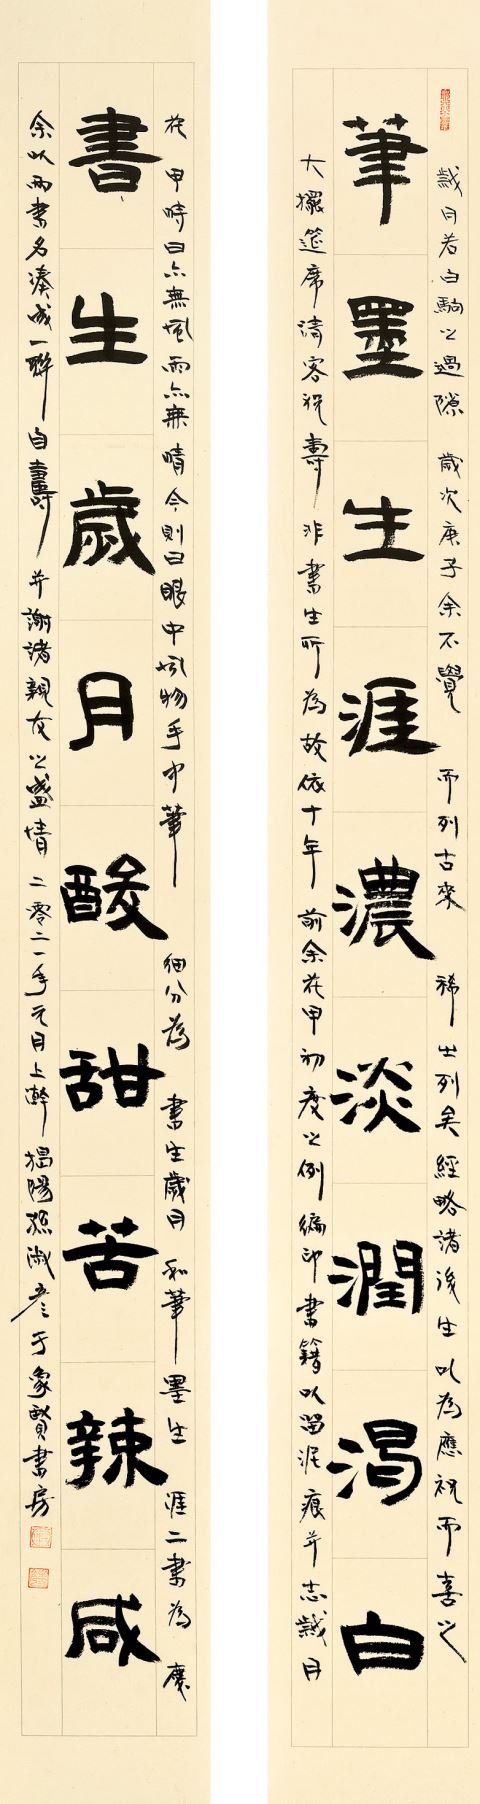 筆墨生涯濃淡潤渴白
歲月若白駒之過隙歲次庚子余不覺而列古來稀士列矣經略諸後生以為應祝而喜之
大擺筵席請客祝壽非書生所為故依十年前余花甲初度之例編印書籍以留泥痕并志歲月
書生歲月酸甜苦辣咸
花甲時曰亦無風雨亦無晴今則曰眼中風物手中筆細分為書生歲月和筆墨生涯二書為慶
余以兩書名湊成一聯自壽并謝諸親友之盛情二零二一年元月上澣揭陽孫淑彥于象賢書房